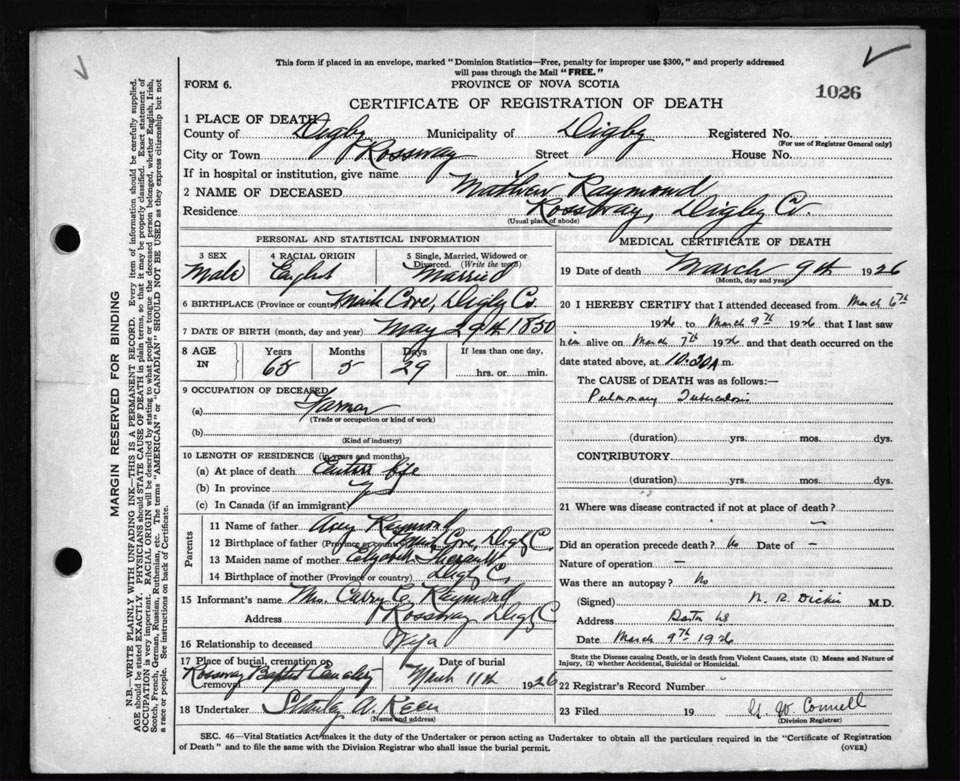 This form if placed in an envelope, marked "Dominion Statistics—Free, penalty for improper use $300," and properly addressed
will pass through the Mail "FREE."
FORM 6. PROVINCE OF NOVA SCOTIA
CERTIFICATE OF REGISTRATION OF DEATH 1026
1 PLACE OF DEATH
County of Digby Municipality of Digby Registered No.
(For use of Registrar General only)
City or Town Rossway Street House No.
If in hospital or institution, give name
2 NAME OF DECEASED Mathew Raymond
Residence Rossway, Digby Co.
(Usual place of abode)
PERSONAL AND STATISTICAL INFORMATION
3 SEX 4 RACIAL ORIGIN 5 Single, Married, Widowed or
Divorced. (Write the word)
Male English Married
6 BIRTHPLACE (Province or country) Mink Cove, Digby Co.
7 DATE OF BIRTH (month, day and year) May 29th 1850
8 AGE IN Years Months Days If less than one day,
5 29 hrs. or min.
9 OCCUPATION OF DECEASED
(a) Farmer
(Trade or occupation or kind of work)
(b)
(Kind of industry)
10 LENGTH OF RESIDENCE (in years and months)
(a) At place of death Entire life
(b) In province
(c) In Canada (if an immigrant)
Parents
11 Name of father Raymond
12 Birthplace of father (Province or country) Mink Cove, Digby C.
13 Maiden name of mother Elizabeth
14 Birthplace of mother (Province or country) Digby C.
15 Informant's name Mrs. Raymond
Address Rossway Digby C
16 Relationship to deceased Wife
17 Place of burial, cremation or Date of burial
removal
Rossway Baptist Cemetery March 11th 1926
18 Undertaker A. Keen
(Name and address)
MEDICAL CERTIFICATE OF DEATH
19 Date of death March 9th 1926
(Month, day and year)
20 I HEREBY CERTIFY that I attended deceased from March 6th
1926 to March 9th 1926 that I last saw
him alive on March 7th 1926 and that death occurred on the
date stated above, at 10.30 A m.
The CAUSE of DEATH was as follows:—
Pulmonary Tuberculosis
(duration) yrs. mos. dys.
CONTRIBUTORY
(duration) yrs. mos. dys.
21 Where was disease contracted if not at place of death?
Did an operation precede death? No Date of –
Nature of operation —
Was there an autopsy? No
(Signed) M.D.
Address
Date March 9th 1926
State the Disease causing Death, or in death from Violent Causes, state (1) Means and Nature of
Injury, (2) whether Accidental, Suicidal or Homicidal.
22 Registrar's Record Number
23 Filed 19 W Connell
(Division Registrar)
SEC. 46—Vital Statistics Act makes it the duty of the Undertaker or person acting as Undertaker to obtain all the particulars required in the "Certificate of Registration
of Death" and to file the same with the Division Registrar who shall issue the burial permit. (OVER)
MARGIN RESERVED FOR BINDING
N.B.—WRITE PLAINLY WITH UNFADING INK—THIS IS A PERMANENT RECORD. Every item of information should be carefully supplied.
AGE should be stated EXACTLY. PHYSICIANS should STATE CAUSE OF DEATH in plain terms, so that it may be properly classified. Exact statement of
OCCUPATION is very important. RACIAL ORIGIN will be described by stating to what people or tongue the deceased person belonged, whether English, Irish,
Scotch, French, German, Russian, Ruthenian, etc. The terms "AMERICAN" or "CANADIAN" SHOULD NOT BE USED as they express citizenship but not
a race or people. See instructions on back of Certificate.